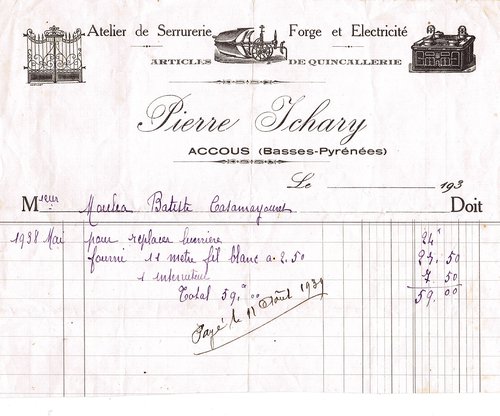 Atelier de Serrurerie Forge et Electricité
ARTICLES DE QUINCALLERIE
Pierre Ichary
ACCOUS (Basses-Pyrénées)
Le 193
Msieur Batiste Casamayouret Doit
1938 Mai pour replacer lumière 24
fourni 11 metre fil blanc a 2.50 27.50
1 interrupteur 7.50
Total 59. 00 59.00
Payé le 11 Août 1939